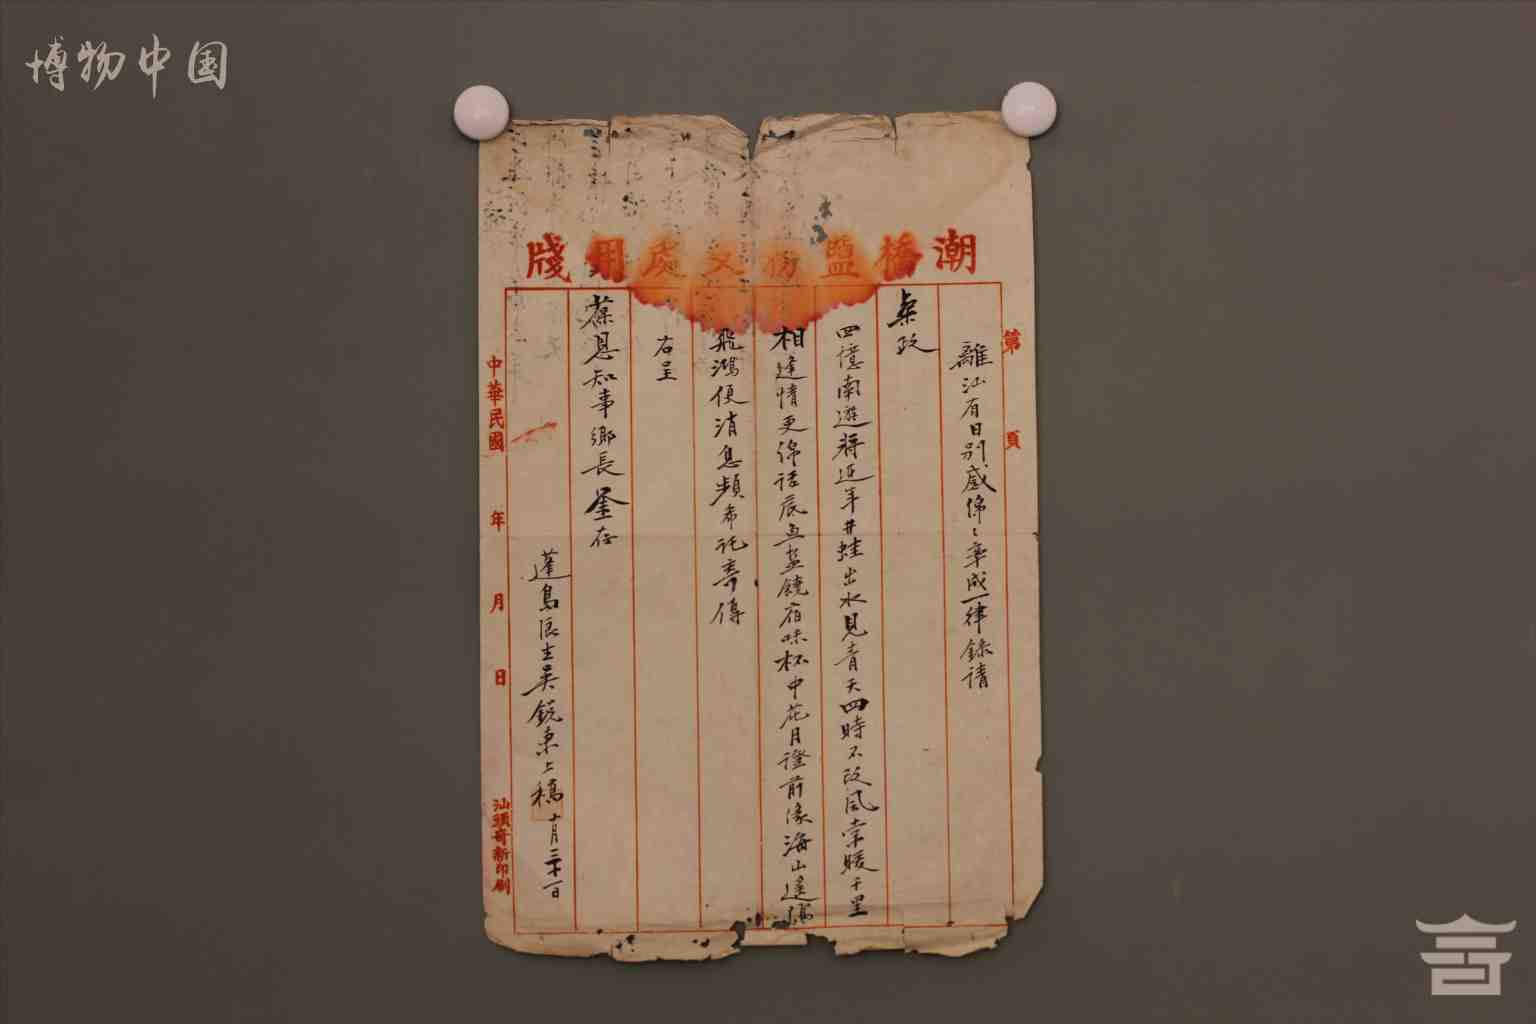 博物中国
潮橋盬務支處用牋
第 頁
離汕有日別感綿綿率成一律錄請
桌政
四憶南遊將近年井蛙出水見青天四時不改風常暖千里
相逢情更綿話底魚鹽饒宿味杯中花月證前緣海山遙隔
飛鴻便消息頻希託壽傳
右呈
葆恩知事鄉長 存
蓬島浪士吳銳東上稿 十月三十一日
中華民國 年 月 日
汕頭奇新印刷